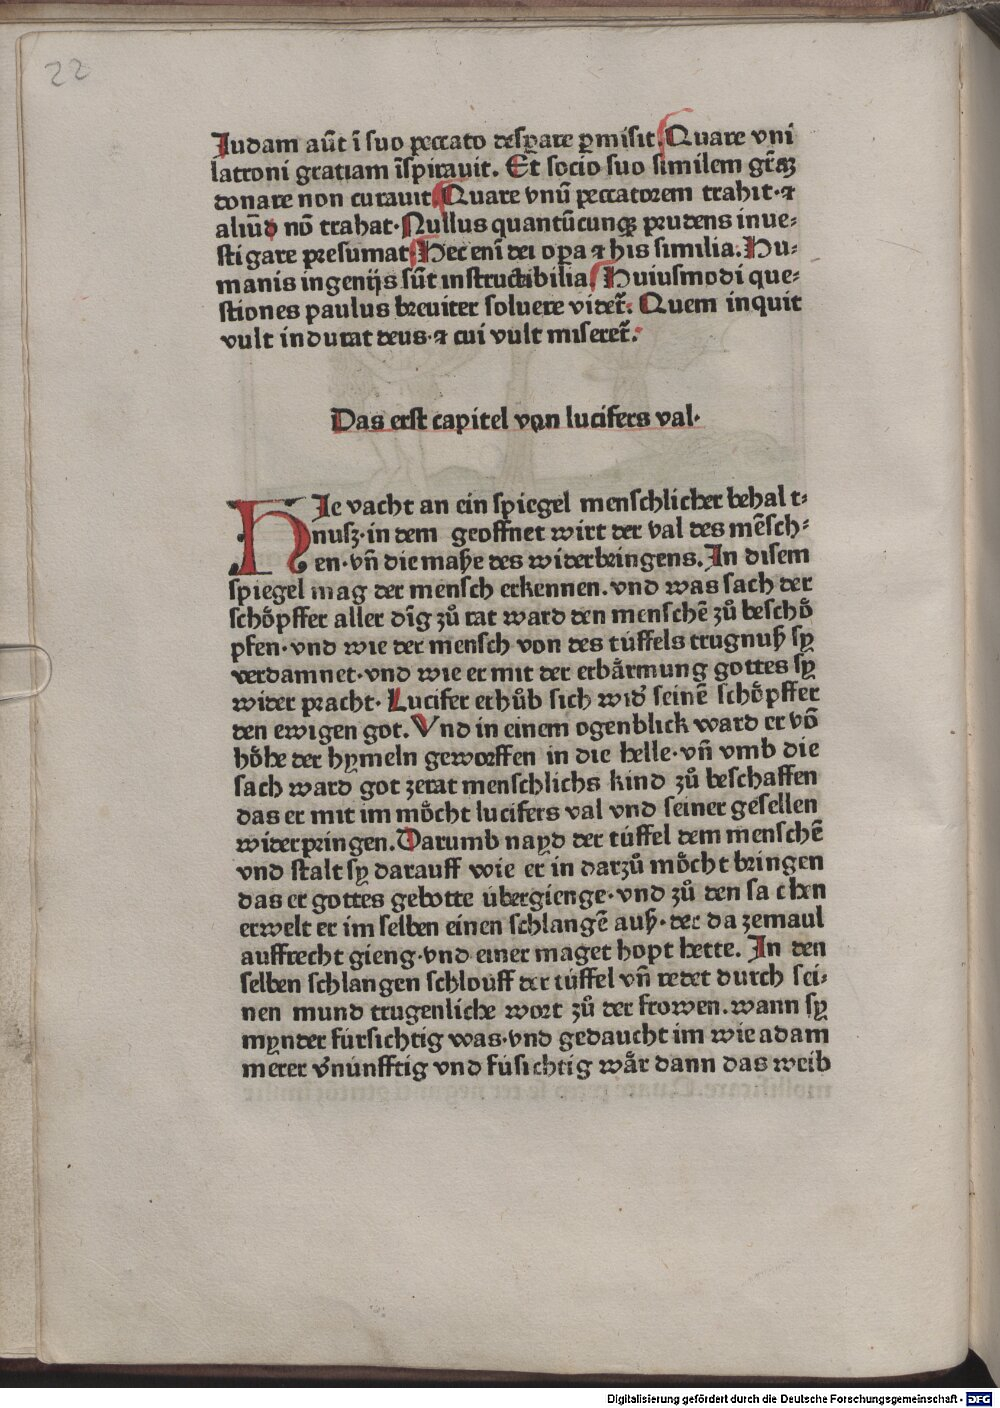 22
Iudam aūt ī suo peccato desꝑare ꝑmisit. Quare vni
latroni gratiam īspirauit. Et socio suo similem gr̄aꝫ
donare non curauit. Quare vnū peccatorem trahit·⁊
aliūd nō trahat· Nullus quantūcunqꝫ prudens inue⸗
stigare presumat. Hec enī dei oꝑa ⁊ his similia. Hu⸗
manis ingenijs sūt instructibilia. Huiusmodi que⸗
stiones paulus breuiter soluere videt̄. Quem inquit
vult indurat deus·⁊ cui vult miseret̄.
Das erst capitel von lucifers val·
HIe vacht an ein spiegel menschlicher behalt⸗
nusz·in dem geoffnet wirt der val des mēsch⸗
en·vn̄ die maße des widerbringens. In disem
spiegel mag der mensch erkennen. vnd was sach der
schoͤpffer aller dīg zuͦ rat ward den menschē zuͦ beschoͤ
pfen·vnd wie der mensch von des tüffels trugnuß sy
verdamnet·vnd wie er mit der erbaͤrmung gottes sy
wider pracht· Lucifer erhuͦb sich wid̾ seinē schoͤpffer
den ewigen got. Vnd in einem ogenblick ward er vō
hoͤhe der hymeln geworffen in die helle·vn̄ vmb die
sach ward got zerat menschlichs kind zuͦ beschaffen
das er mit im moͤcht lucifers val vnd seiner gesellen
widerpringen. Darumb nayd der tüffel dem menschē
vnd stalt sy darauff wie er in darzuͦ moͤcht bringen
das er gottes gebotte übergienge·vnd zuͦ den sachen
erwelt er im selben einen schlangē auß·der da zemaul
auffrecht gieng·vnd einer maget hopt hette. In den
selben schlangen schlouff der tüffel vn̄ redet durch sei⸗
nen mund trugenliche wort zuͦ der frowen. wann sy
mynder fürsichtig was·vnd gedaucht im wie adam
merer v̄nünfftig vnd füsichtig waͤr dann das weib
Digitalisierung gefördert durch die Deutsche Forschungsgemeinschaft - DFG